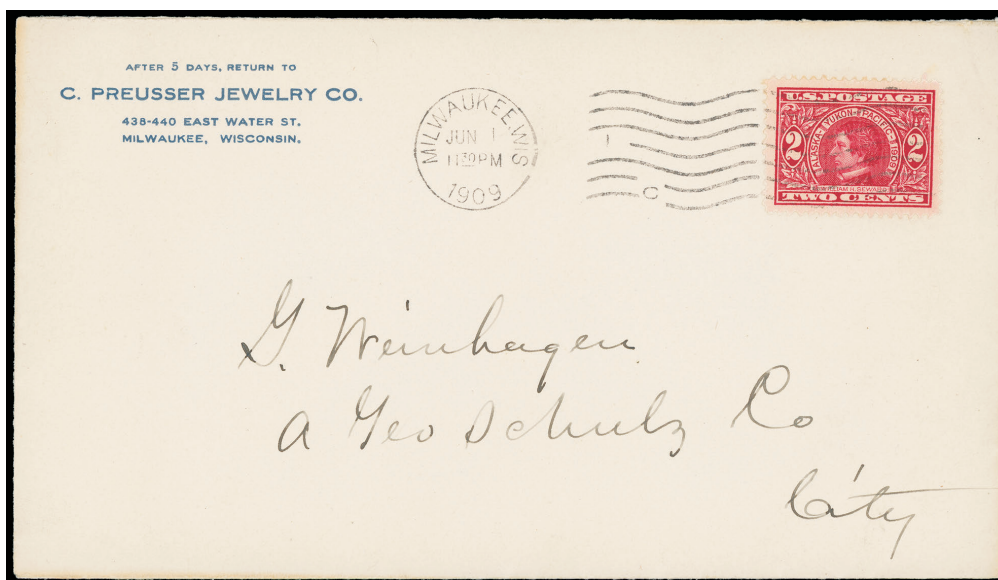 AFTER 5 DAYS, RETURN TO
C. PREUSSER JEWELRY CO.
438-440 EAST WATER ST.
MILWAUKEE, WISCONSIN.
MILWAUKEE, WIS
JUN 1
11 30 PM
1909
1
C
U.S. POSTAGE
ALASKA-YUKON-PACIFIC 1909
2 2
WILLIAM H. SEWARD
TWO CENTS
G. Weinhagen
A Geo Schulz Co
City